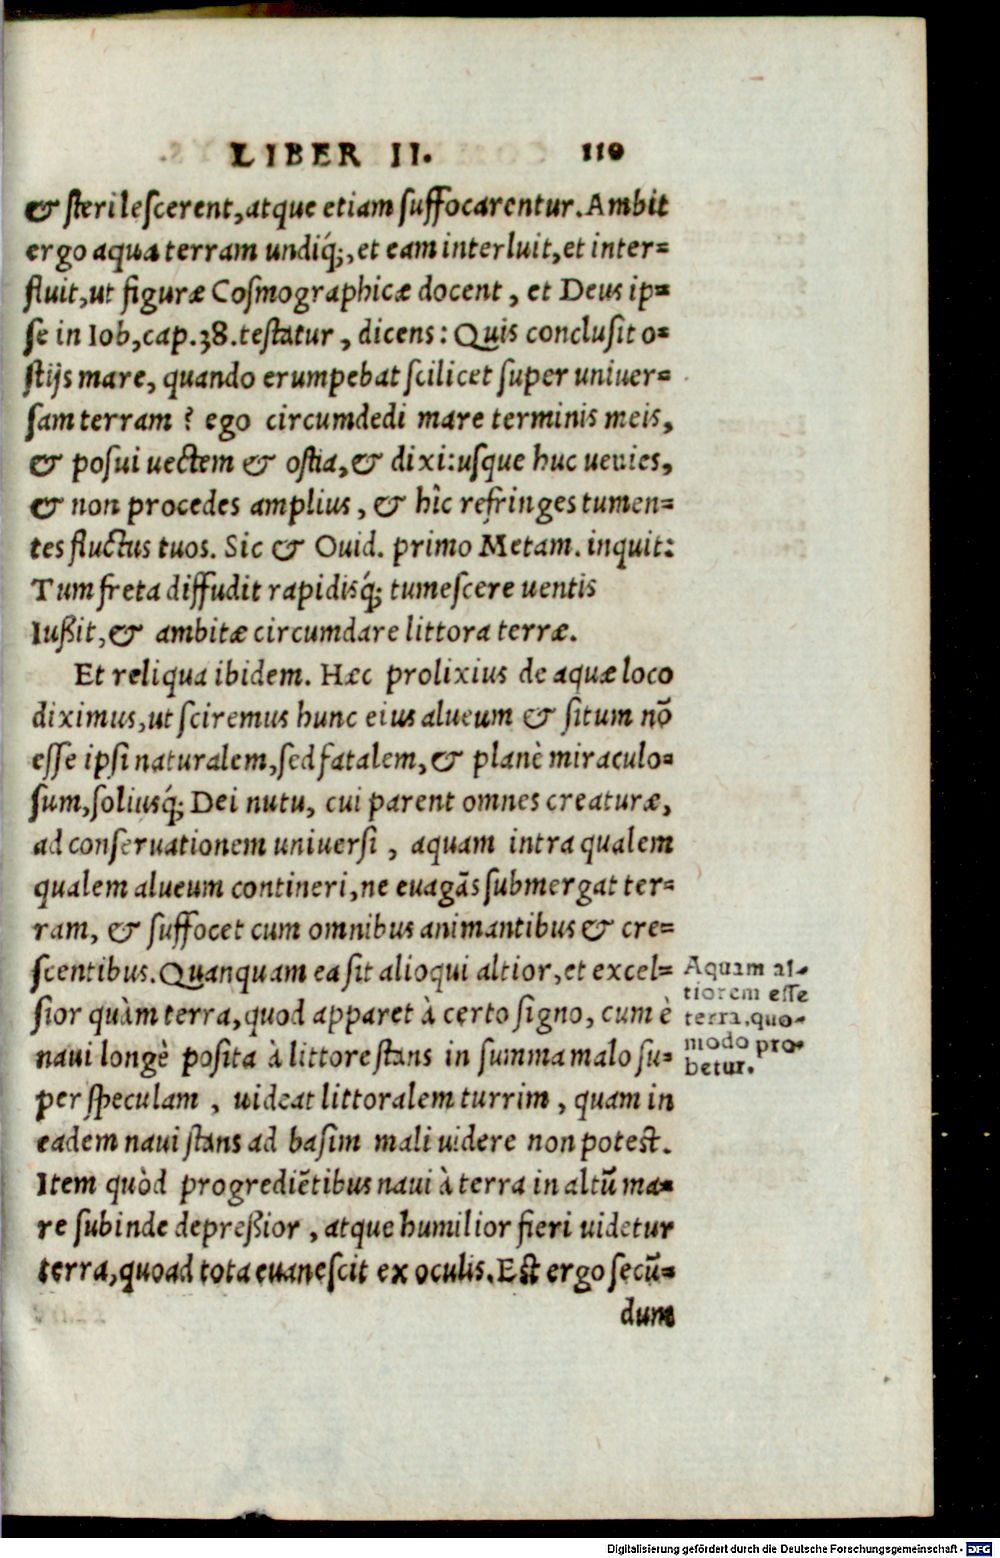 LIBER II. 110
& sterilescerent, atque etiam suffocarentur. Ambit
ergo aqua terram undiq́;, et eam interluit, et inter=
fluit, ut figuræ Cosmographicæ docent, et Deus ip=
se in Iob, cap. 38. testatur, dicens: Quis conclusit o=
stijs mare, quando erumpebat scilicet super uniuer=
sam terram? ego circumdedi mare terminis meis,
& posui uectem & ostia, & dixi: usque huc uenies,
& non procedes amplius, & hîc refringes tumen=
tes fluctus tuos. Sic & Ouid. primo Metam. inquit:
Tum freta diffudit rapidisq́; tumescere uentis
Iußit, & ambitæ circumdare littora terræ.
Et reliqua ibidem. Hæc prolixius de aquæ loco
diximus, ut sciremus hunc eius alueum & situm nō
esse ipsi naturalem, sed fatalem, & planè miraculo=
sum, soliusq́; Dei nutu, cui parent omnes creaturæ,
ad conseruationem uniuersi, aquam intra qualem
qualem alueum contineri, ne euagās submergat ter=
ram, & suffocet cum omnibus animantibus & cre=
scentibus. Quanquam ea sit alioqui altior, et excel=
sior quàm terra, quod apparet à certo signo, cum è
naui longè posita à littore stans in summa malo su=
per speculam, uideat littoralem turrim, quam in
eadem naui stans ad basim mali uidere non potest.
Item quòd progrediētibus naui à terra in altū ma=
re subinde depreßior, atque humilior fieri uidetur
terra, quoad tota euanescit ex oculis. Est ergo secū=
dum
Aquam al-
tiorem esse
terra, quo-
modo pro-
betur.
Digitalisierung gefördert durch die Deutsche Forschungsgemeinschaft - DFG